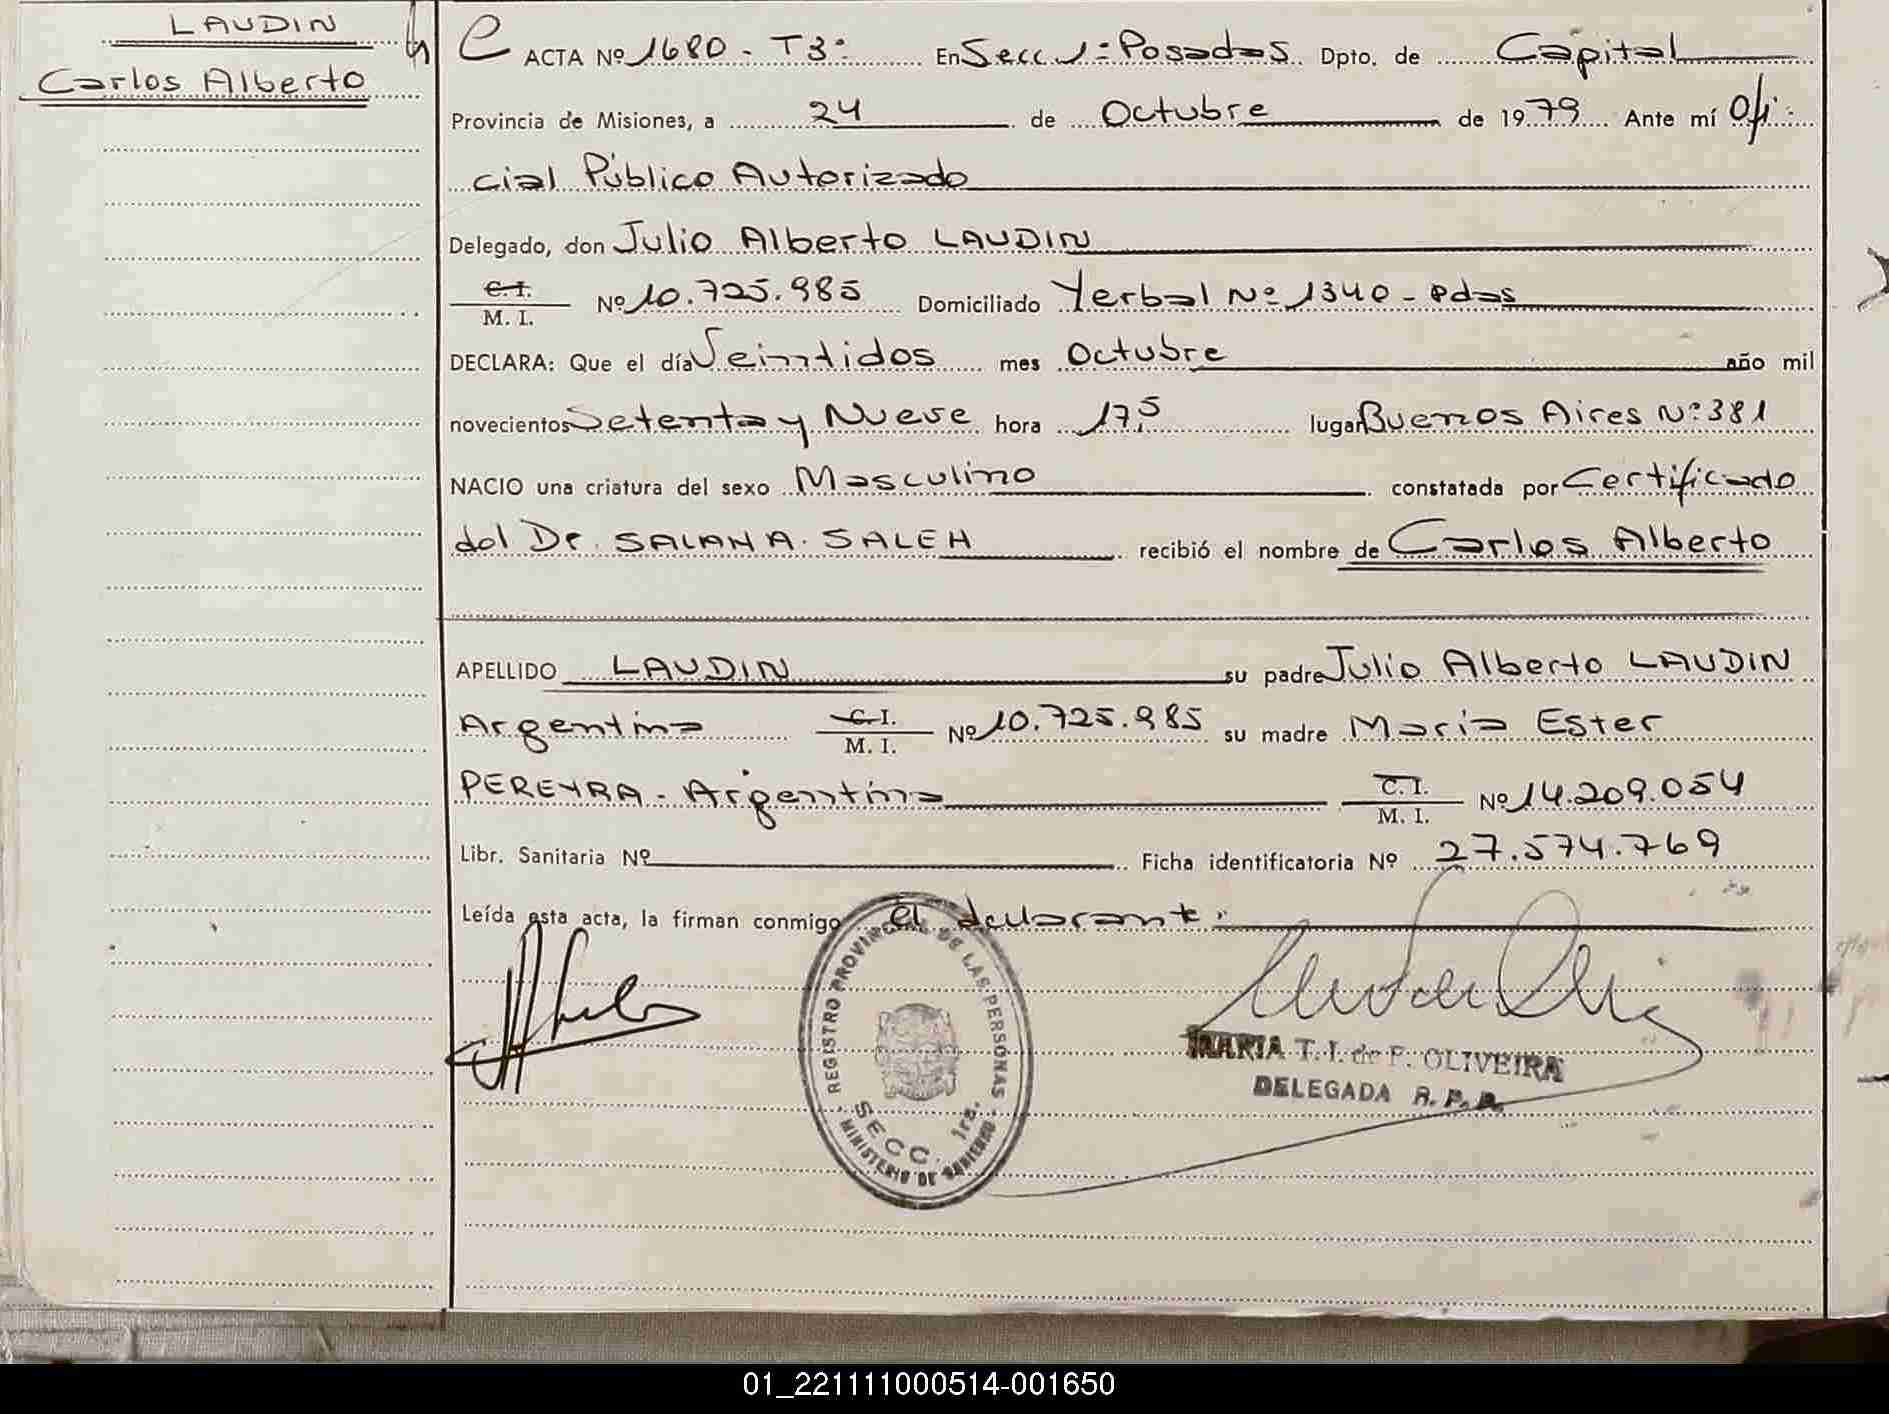 LAUDIN
Carlos Alberto
ACTA Nº 1680 - T3: En Secc 1= Posadas Dpto. de Capital
Provincia de Misiones, a 24 de Octubre de 1979 Ante mí Ofi-
cial Público Autorizado
Delegado, don Julio Alberto LAUDIN
C.I. M. I. Nº 10.725.985 Domiciliado Yerbal Nº 1340 - Pdas
DECLARA: Que el día Veintidos mes Octubre año mil
novecientos Setenta y Nueve hora 17,5 lugar Buenos Aires Nº 381
NACIO una criatura del sexo Masculino constatada por Certificado
del Dr. SALAHA. SALEH recibió el nombre de Carlos Alberto
APELLIDO LAUDIN su padre Julio Alberto LAUDIN
Argentino C.I. M. I. Nº 10.725.985 su madre Maria Ester
PEREYRA - Argentina C.I. M. I. Nº 14.209.054
Libr. Sanitaria Nº Ficha identificatoria Nº 27.574.769
Leída esta acta, la firman conmigo el declarante.
REGISTRO PROVINCIAL DE LAS PERSONAS
SECC. 1ra.
MINISTERIO DE GOBIERNO
MARIA T. I. de F. OLIVEIRA
DELEGADA R. P. P.
01_221111000514-001650